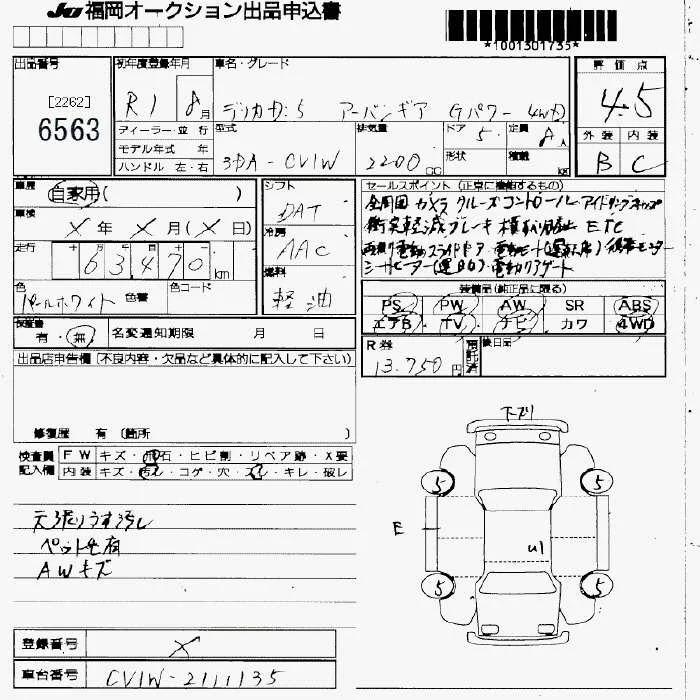 JU 福岡オークション出品申込書
*1001301735*
出品番号
[2262]
6563
初年度登録年月
R1 8月
車名・グレード
デリカD:5 アーバンギア Gパワー 4WD
評価点
4.5
外装 内装
B C
ディーラー・並行
モデル年式 年
ハンドル 左・右
型式
3DA-CV1W
排気量
2200 CC
ドア
5
形状
定員
8人
積載
kg
車歴
自家用( )
車検
X年 X月(X日)
走行
十 万 千 百 十 一
63,470 km
色
パールホワイト
色番
色コード
シフト
DAT
冷房
AAC
燃料
軽油
セールスポイント (正常に機能するもの)
全周囲カメラ クルーズコントロール アイドリングストップ
衝突軽減ブレーキ 横滑り防止 ETC
両側電動スライドドア 電動シート(運転席)
シートヒーター(運助)・電動リアゲート
装備品(純正品に限る)
PS PW AW SR ABS
エアB TV ナビ カワ 4WD
保証書
有・無
名変通知期限 月 日
R券
13,750円
預託済
後日品
出品店申告欄 (不良内容・欠品など具体的に記入して下さい)
修復歴 有 (箇所 )
検査員記入欄
FW キズ・飛石・ヒビ割・リペア跡・X要
内装 キズ・汚れ・コゲ・穴・スレ・キレ・破レ
天張りうす汚れ
ペット毛有
AWキズ
下ズリ
5 5
E
U1
5 5
登録番号
X
車台番号
CV1W-2111135